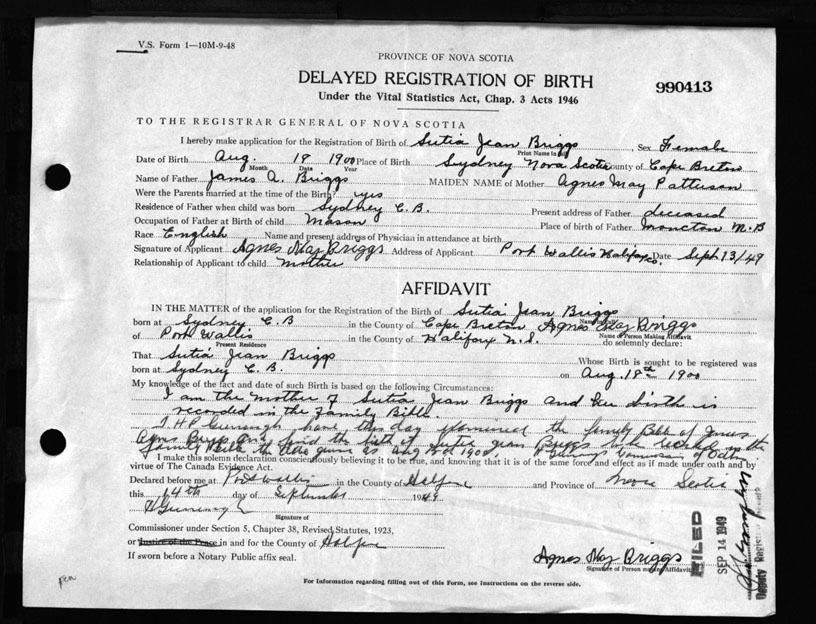 V.S. Form 1—10M-9-48
PROVINCE OF NOVA SCOTIA
DELAYED REGISTRATION OF BIRTH
990413
Under the Vital Statistics Act, Chap. 3 Acts 1946
TO THE REGISTRAR GENERAL OF NOVA SCOTIA
I hereby make application for the Registration of Birth of Sutia Jean Briggs, Sex Female
Print Name in full
Date of Birth Aug. 18 1900 Place of Birth Sydney Nova Scotia County of Cape Breton
Month Date Year
Name of Father James A. Briggs MAIDEN NAME of Mother Agnes May Patterson
Were the Parents married at the time of the Birth? yes
Residence of Father when child was born Sydney C.B. Present address of Father deceased
Occupation of Father at Birth of child Mason Place of birth of Father Moncton N.B
Race English Name and present address of Physician in attendance at birth
Signature of Applicant Agnes May Briggs Address of Applicant Port Wallis Halifax Co. Date Sept 13/49
Relationship of Applicant to child mother
AFFIDAVIT
IN THE MATTER of the application for the Registration of the Birth of Sutia Jean Briggs
born at Sydney C.B in the County of Cape Breton Agnes May Briggs
Name of Person Making Affidavit
of Port Wallis in the County of Halifax N.S. do solemnly declare:
Present Residence
That Sutia Jean Briggs Whose Birth is sought to be registered was
born at Sydney C.B. on Aug. 18th 1900
My knowledge of the fact and date of such Birth is based on the following Circumstances:
I am the mother of Sutia Jean Briggs and her birth is
recorded in the Family Bible.
I H P have this day examined the family Bible of James
Agnes Briggs and find the birth of Sutia Jean Briggs to be recorded in the
family Bible the date given as Aug 1900, Commissioner of Oath
I make this solemn declaration conscientiously believing it to be true, and knowing that it is of the same force and effect as if made under oath and by
virtue of The Canada Evidence Act.
Declared before me at Port Wallis in the County of Halifax and Province of Nova Scotia
this 14th day of September 1949
Signature of
Commissioner under Section 5, Chapter 38, Revised Statutes, 1923,
or Justice of the Peace in and for the County of Halifax
If sworn before a Notary Public affix seal.
Agnes May Briggs
Signature of Person making Affidavit
FILED
SEP 14 1949
Deputy Registrar
For Information regarding filling out of this Form, see Instructions on the reverse side.